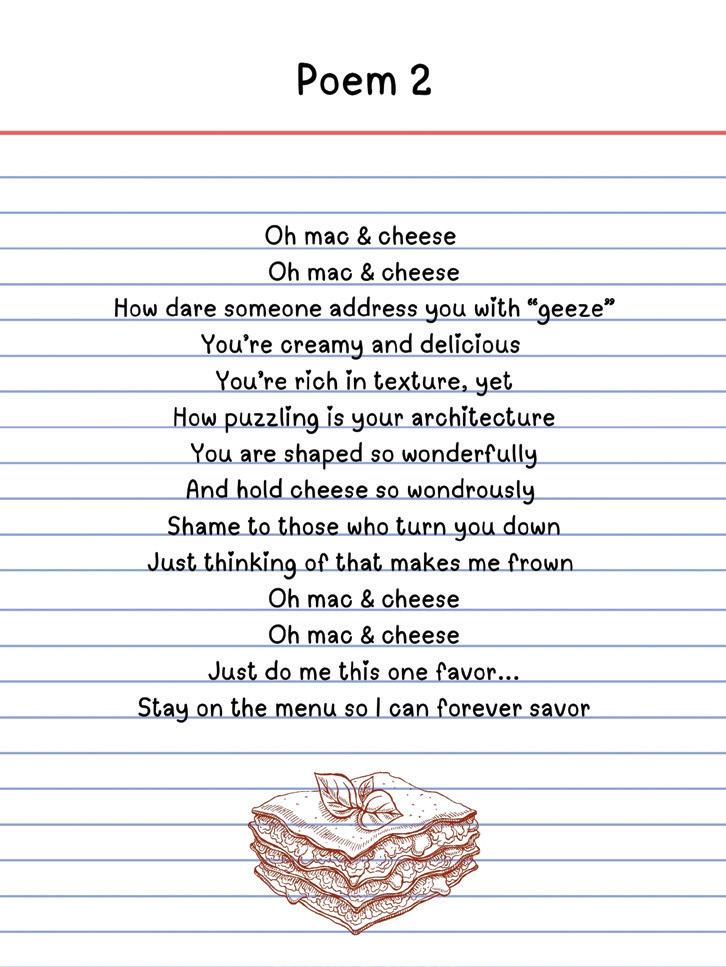 Poem 2
Oh mac & cheese
Oh mac & cheese
How dare someone address you with “geeze”
You’re creamy and delicious
You’re rich in texture, yet
How puzzling is your architecture
You are shaped so wonderfully
And hold cheese so wondrously
Shame to those who turn you down
Just thinking of that makes me frown
Oh mac & cheese
Oh mac & cheese
Just do me this one favor...
Stay on the menu so I can forever savor